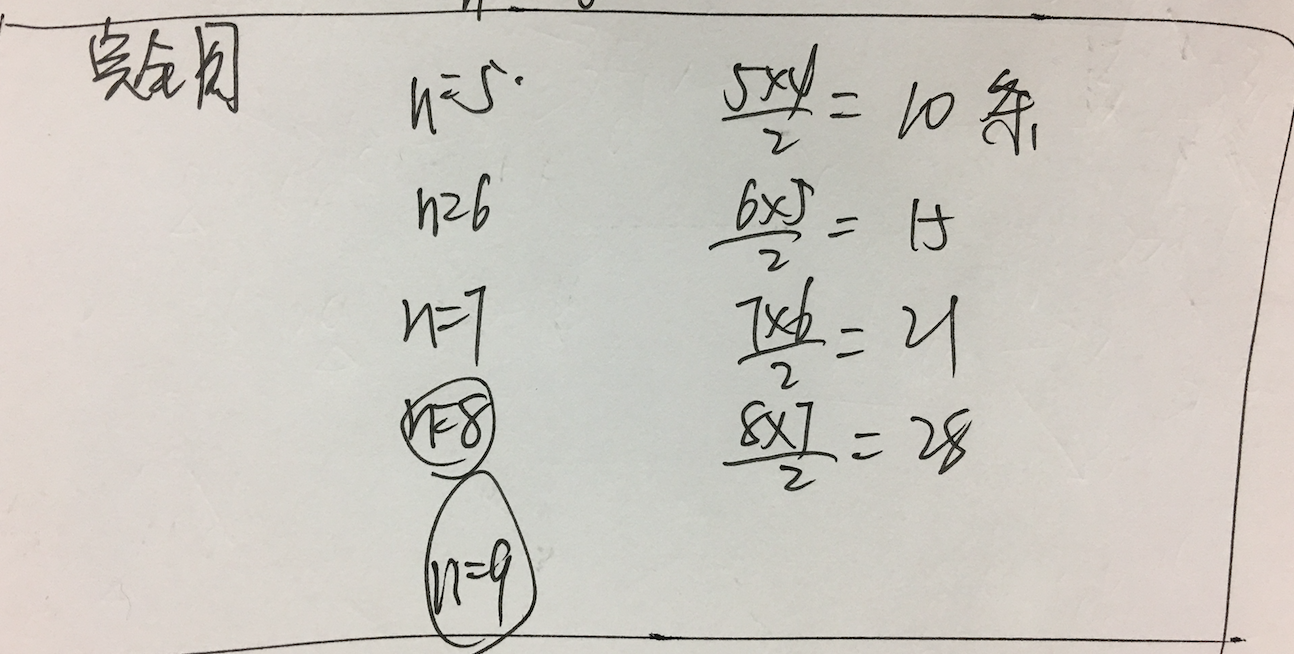 完全图
n=5 5×4/2 = 10 条
n=6 6×5/2 = 15
n=7 7×6/2 = 21
n=8 8×7/2 = 28
n=9